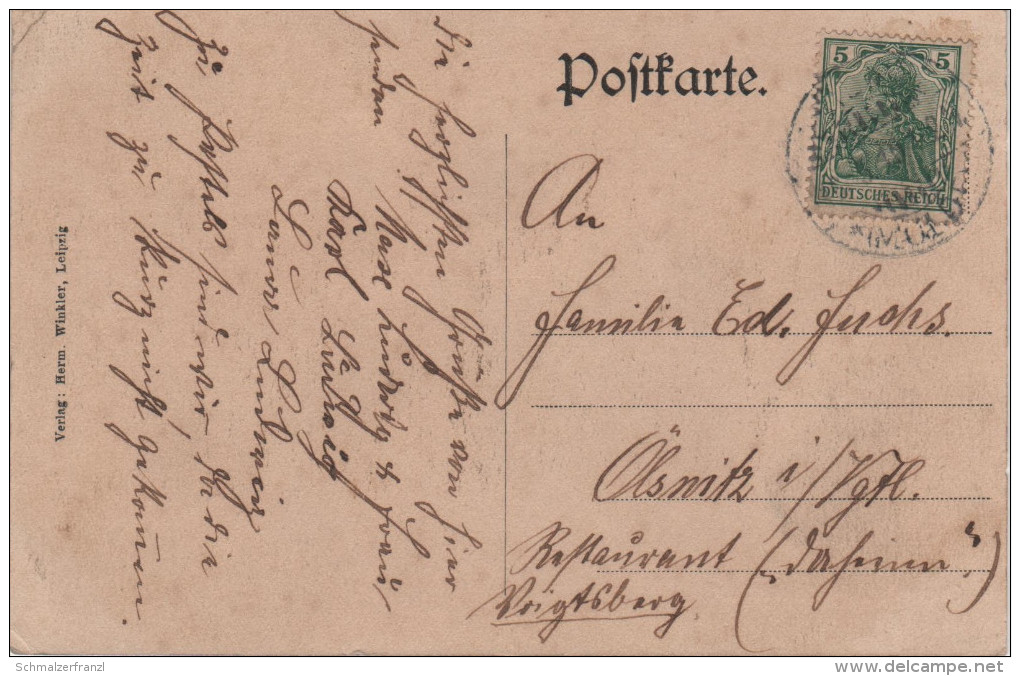 Postkarte.
5 5
DEUTSCHES REICH
An
Familie Ed. Fuchs.
Ölsnitz i/Vgtl.
Restaurant („Daheim“)
Voigtsberg
Die herzlichsten Grüße von hier
senden Max Ludwig & Frau
Karl Ludwig
Ludwig
Zu
sind wir, da die
Zeit zu kurz nicht gekommen.
Verlag: Herm. Winkler, Leipzig
Schmalzerfranzl
delcampe.net